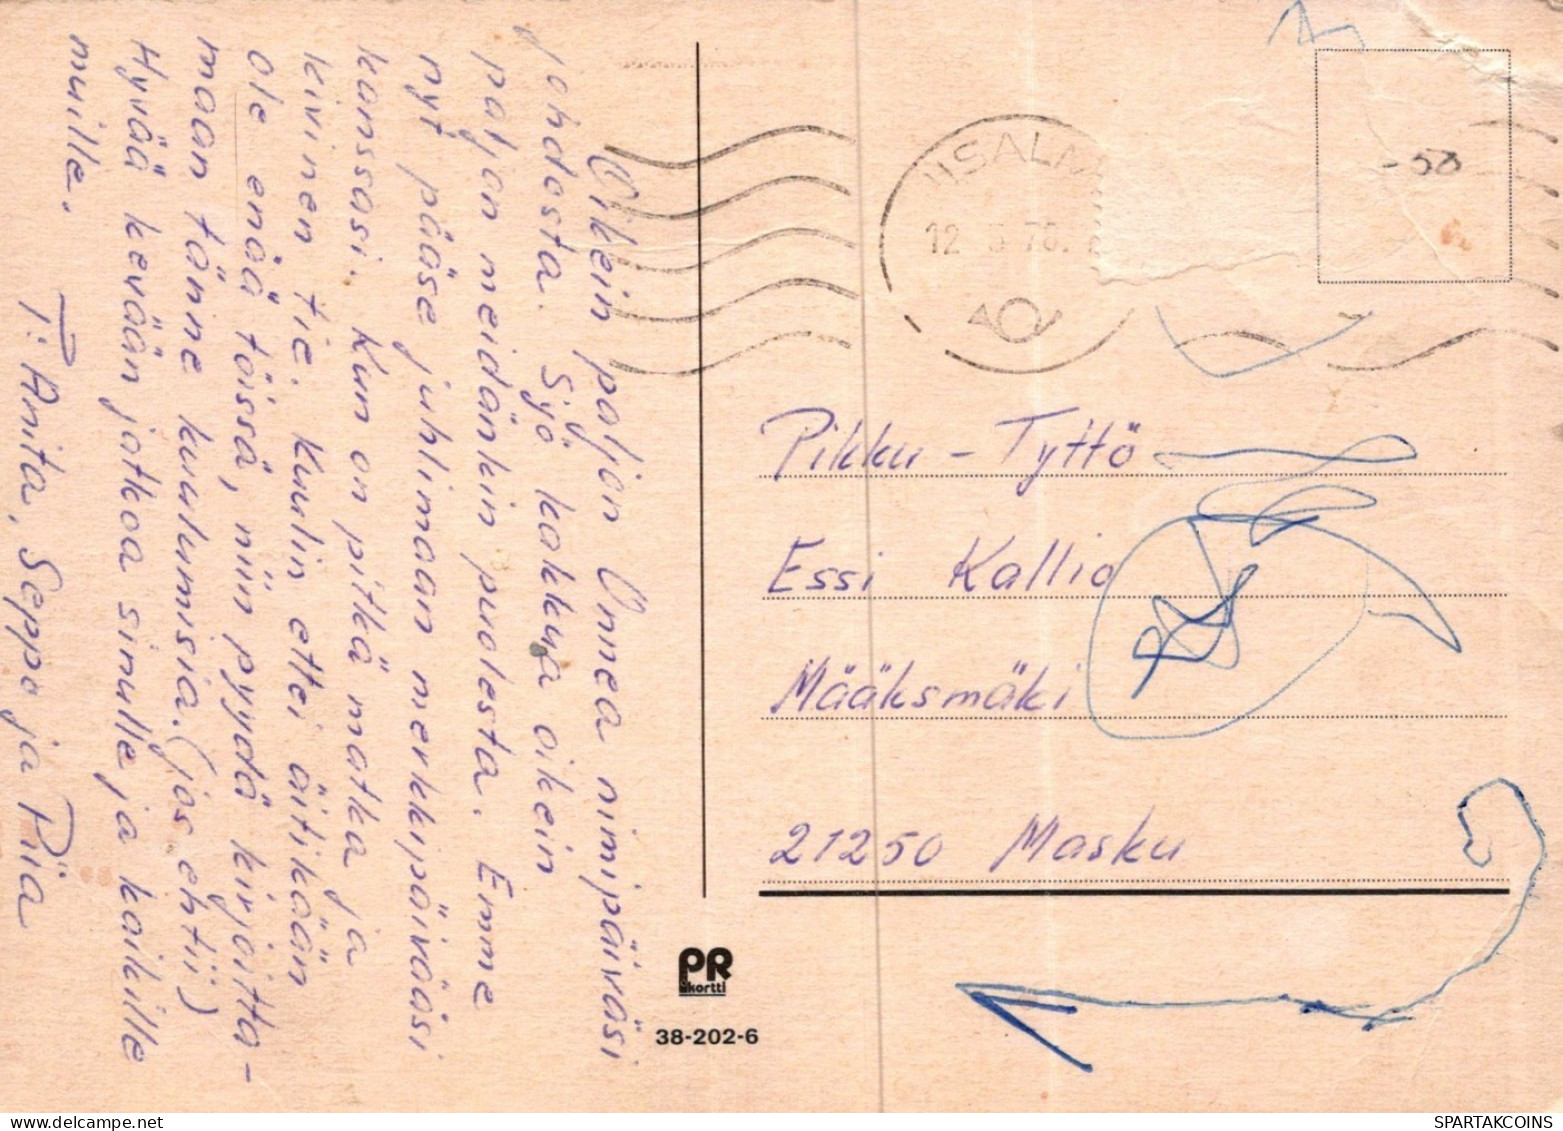 Oikein paljon Onnea nimipäiväsi
johdosta. Syö kakkua oikein
paljon meidänkin puolesta. Emme
nyt pääse juhlimaan merkkipäivääsi
kanssasi. Kun on pitkä matka ja
kivinen tie. Kuulin ettei äitikään
ole enää töissä, niin pyydä kirjoitta-
maan tänne kuulumisia. (jos ehtii)
Hyvää kevään jatkoa sinulle ja kaikille
muille.
T: Anita, Seppo ja Piia
IISALM
12. 5 76.
-50
Pikku - Tyttö
Essi Kallio
Määksmäki
21250 Masku
PR
kortti
38-202-6
SPARTAKCOINS